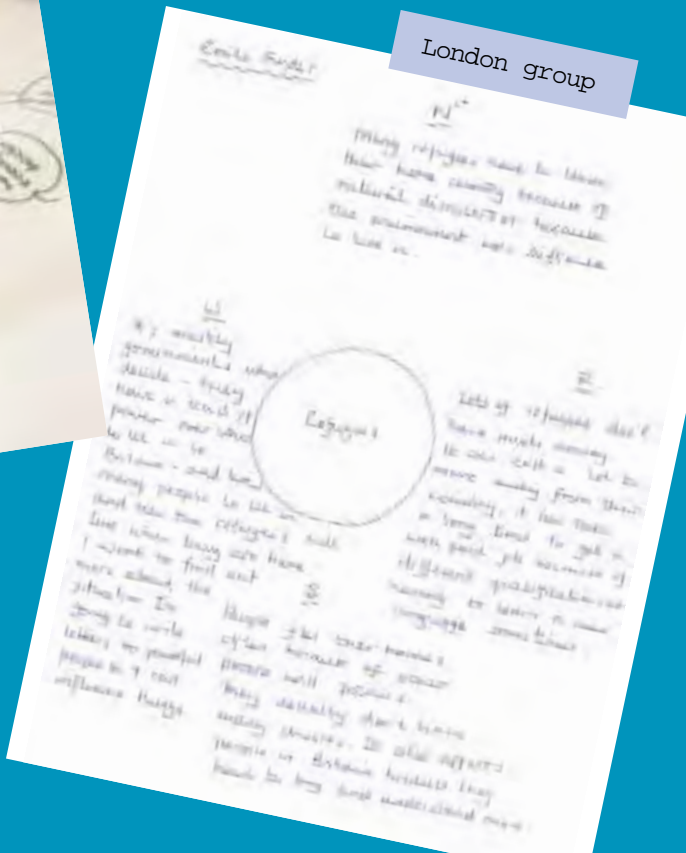 London group
N
Many refugees have to leave
their home country because of
natural disasters or because
the environment was difficult
to live in.
W
It's mostly
governments who
decide - they
have a kind of
power over who
to let in to
Britain - and how
many people to let in
And how the refugees will
live when they are here
I want to find out
more about the
situation I'm
going to write
letters to powerful
people so I can
influence things
Refugees
E
Lots of refugees don't
have much money
It can cost a lot to
move away from their
country, it can take
a long time to get a
well paid job because of
different qualifications
having to learn a new
language sometimes.
S
People flee their homes
often because of
people and
they usually don't have
many choices. It also affects
people in Britain because they
have to try and understand